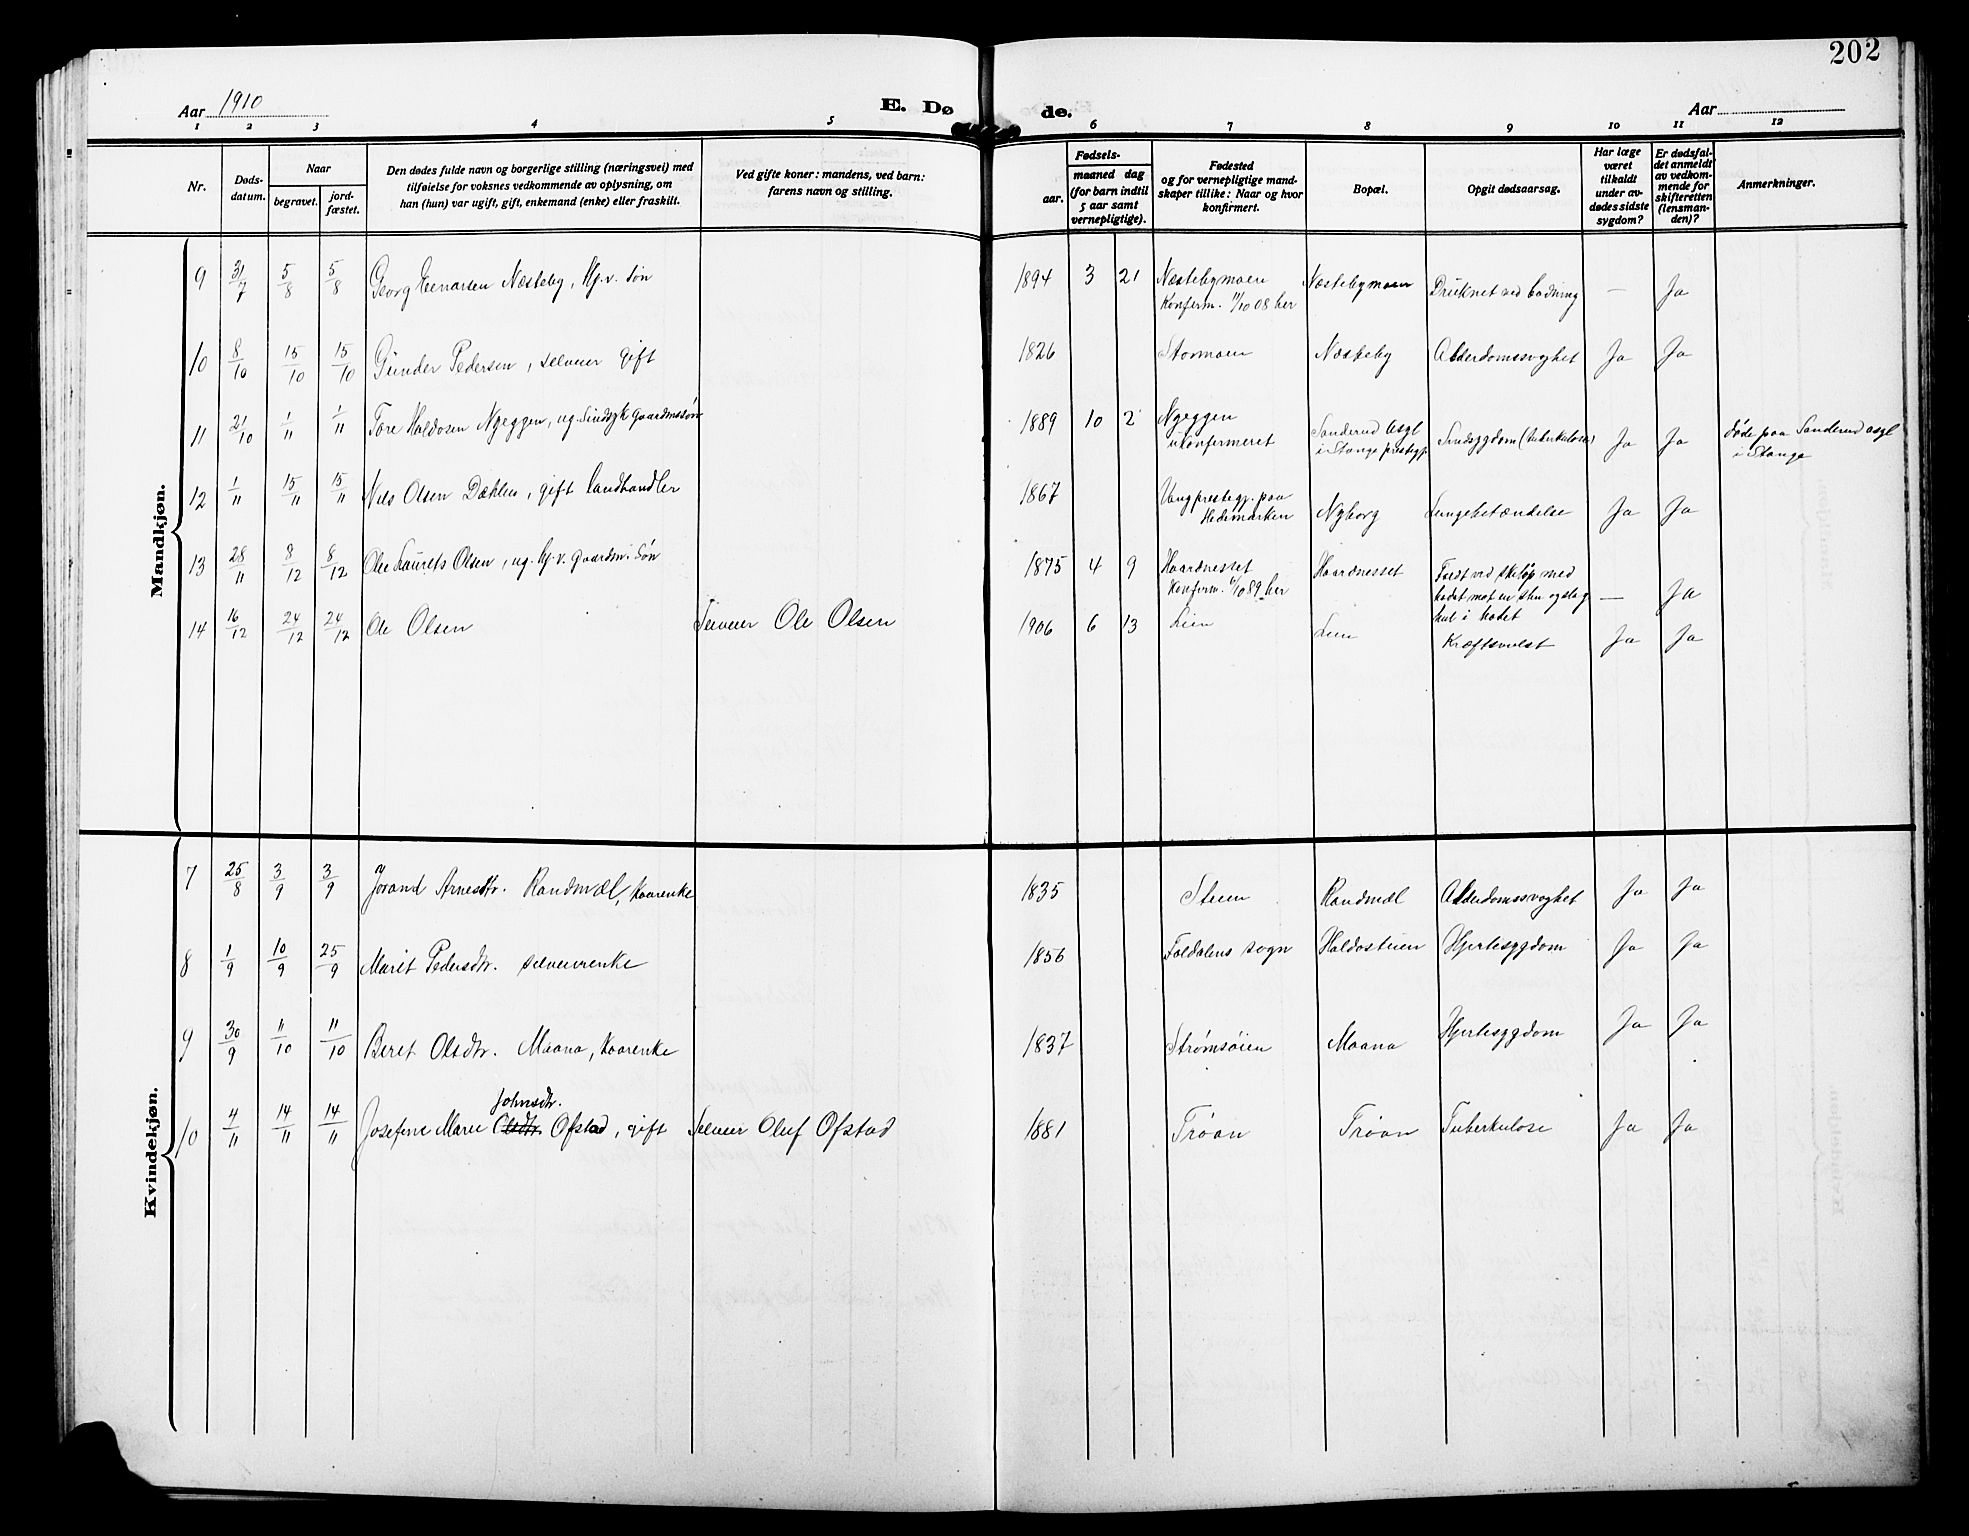 202
Aar 1910
E. Dø de.
Aar
1 2 3 4 5 6 7 8 9 10 11 12
Nr.
Døds-
datum.
Naar
begravet.
jord-
fæstet.
Den dødes fulde navn og borgerlige stilling (næringsvei) med
tilføielse for voksnes vedkommende av oplysning, om
han (hun) var ugift, gift, enkemand (enke) eller fraskilt.
Ved gifte koner: mandens, ved barn:
farens navn og stilling.
Fødsels-
aar.
maaned dag
(for barn indtil
5 aar samt
vernepligtige).
Fødested
og for vernepligtige mand-
skaper tillike: Naar og hvor
konfirmert.
Bopæl.
Opgit dødsaarsag.
Har læge
været
tilkaldt
under av-
dødes sidste
sygdom?
Er dødsfal-
det anmeldt
av vedkom-
mende for
skifteretten
(lensman-
den)?
Anmerkninger.
Mandkjøn.
9 31/7 5/8 5/8 Georg Einarsen Næsteby, Hj.v. søn 1894 3 21 Næstebymoen Næstebymoen Druknet ved badning — Ja
Konferm. 11/10 08 her
10 8/10 15/10 15/10 Gunder Pedersen, selveier gift 1826 Stormoen Næsteby Alderdomssvaghet Ja Ja
11 21/10 1/11 1/11 Tore Haldosen Nyeggen, ug. Sindsyk gaardmssøn 1889 10 2 Nyeggen Sanderud Asyl Sindsygdom (tuberkulose) Ja Ja døde paa Sanderud asyl
ukonfermeret i Stange prestegj. i Stange
12 1/11 15/11 15/11 Nils Olsen Dæhlen, gift landhandler 1867 Vang prestegj. paa Nyborg Lungebetændelse Ja Ja
Hedemarken
13 28/11 8/12 8/12 Ole Laurets Olsen, ug. Hj.v. gaardm. søn 1875 4 9 Haardnesset Haardnesset Forst ved skiløp med — Ja
Konferm. 6/10 89 her hodet mot en sten og slog
hul i hodet
14 16/12 24/12 24/12 Ole Olsen Selveier Ole Olsen 1906 6 13 Lien Lien Kræftsvulst Ja Ja
Kvindekjøn.
7 25/8 3/9 3/9 Jorand Arnesdtr. Randmæl, kaarenke 1835 Steien Randmæl Alderdomssvaghet Ja Ja
8 1/9 10/9 25/9 Marit Pedersdtr. selveierenke 1856 Foldalens sogn Haldosteien Hjertesygdom Ja Ja
9 30/9 11/10 11/10 Beret Olsdtr. Maana, kaarenke 1837 Strømsøien Maana Hjertesygdom Ja Ja
Johnsdtr.
10 4/11 14/11 14/11 Josefine Marie Olsdtr. Ofstad, gift Selveier Oluf Ofstad 1881 Trøan Trøan Tuberkulose Ja Ja